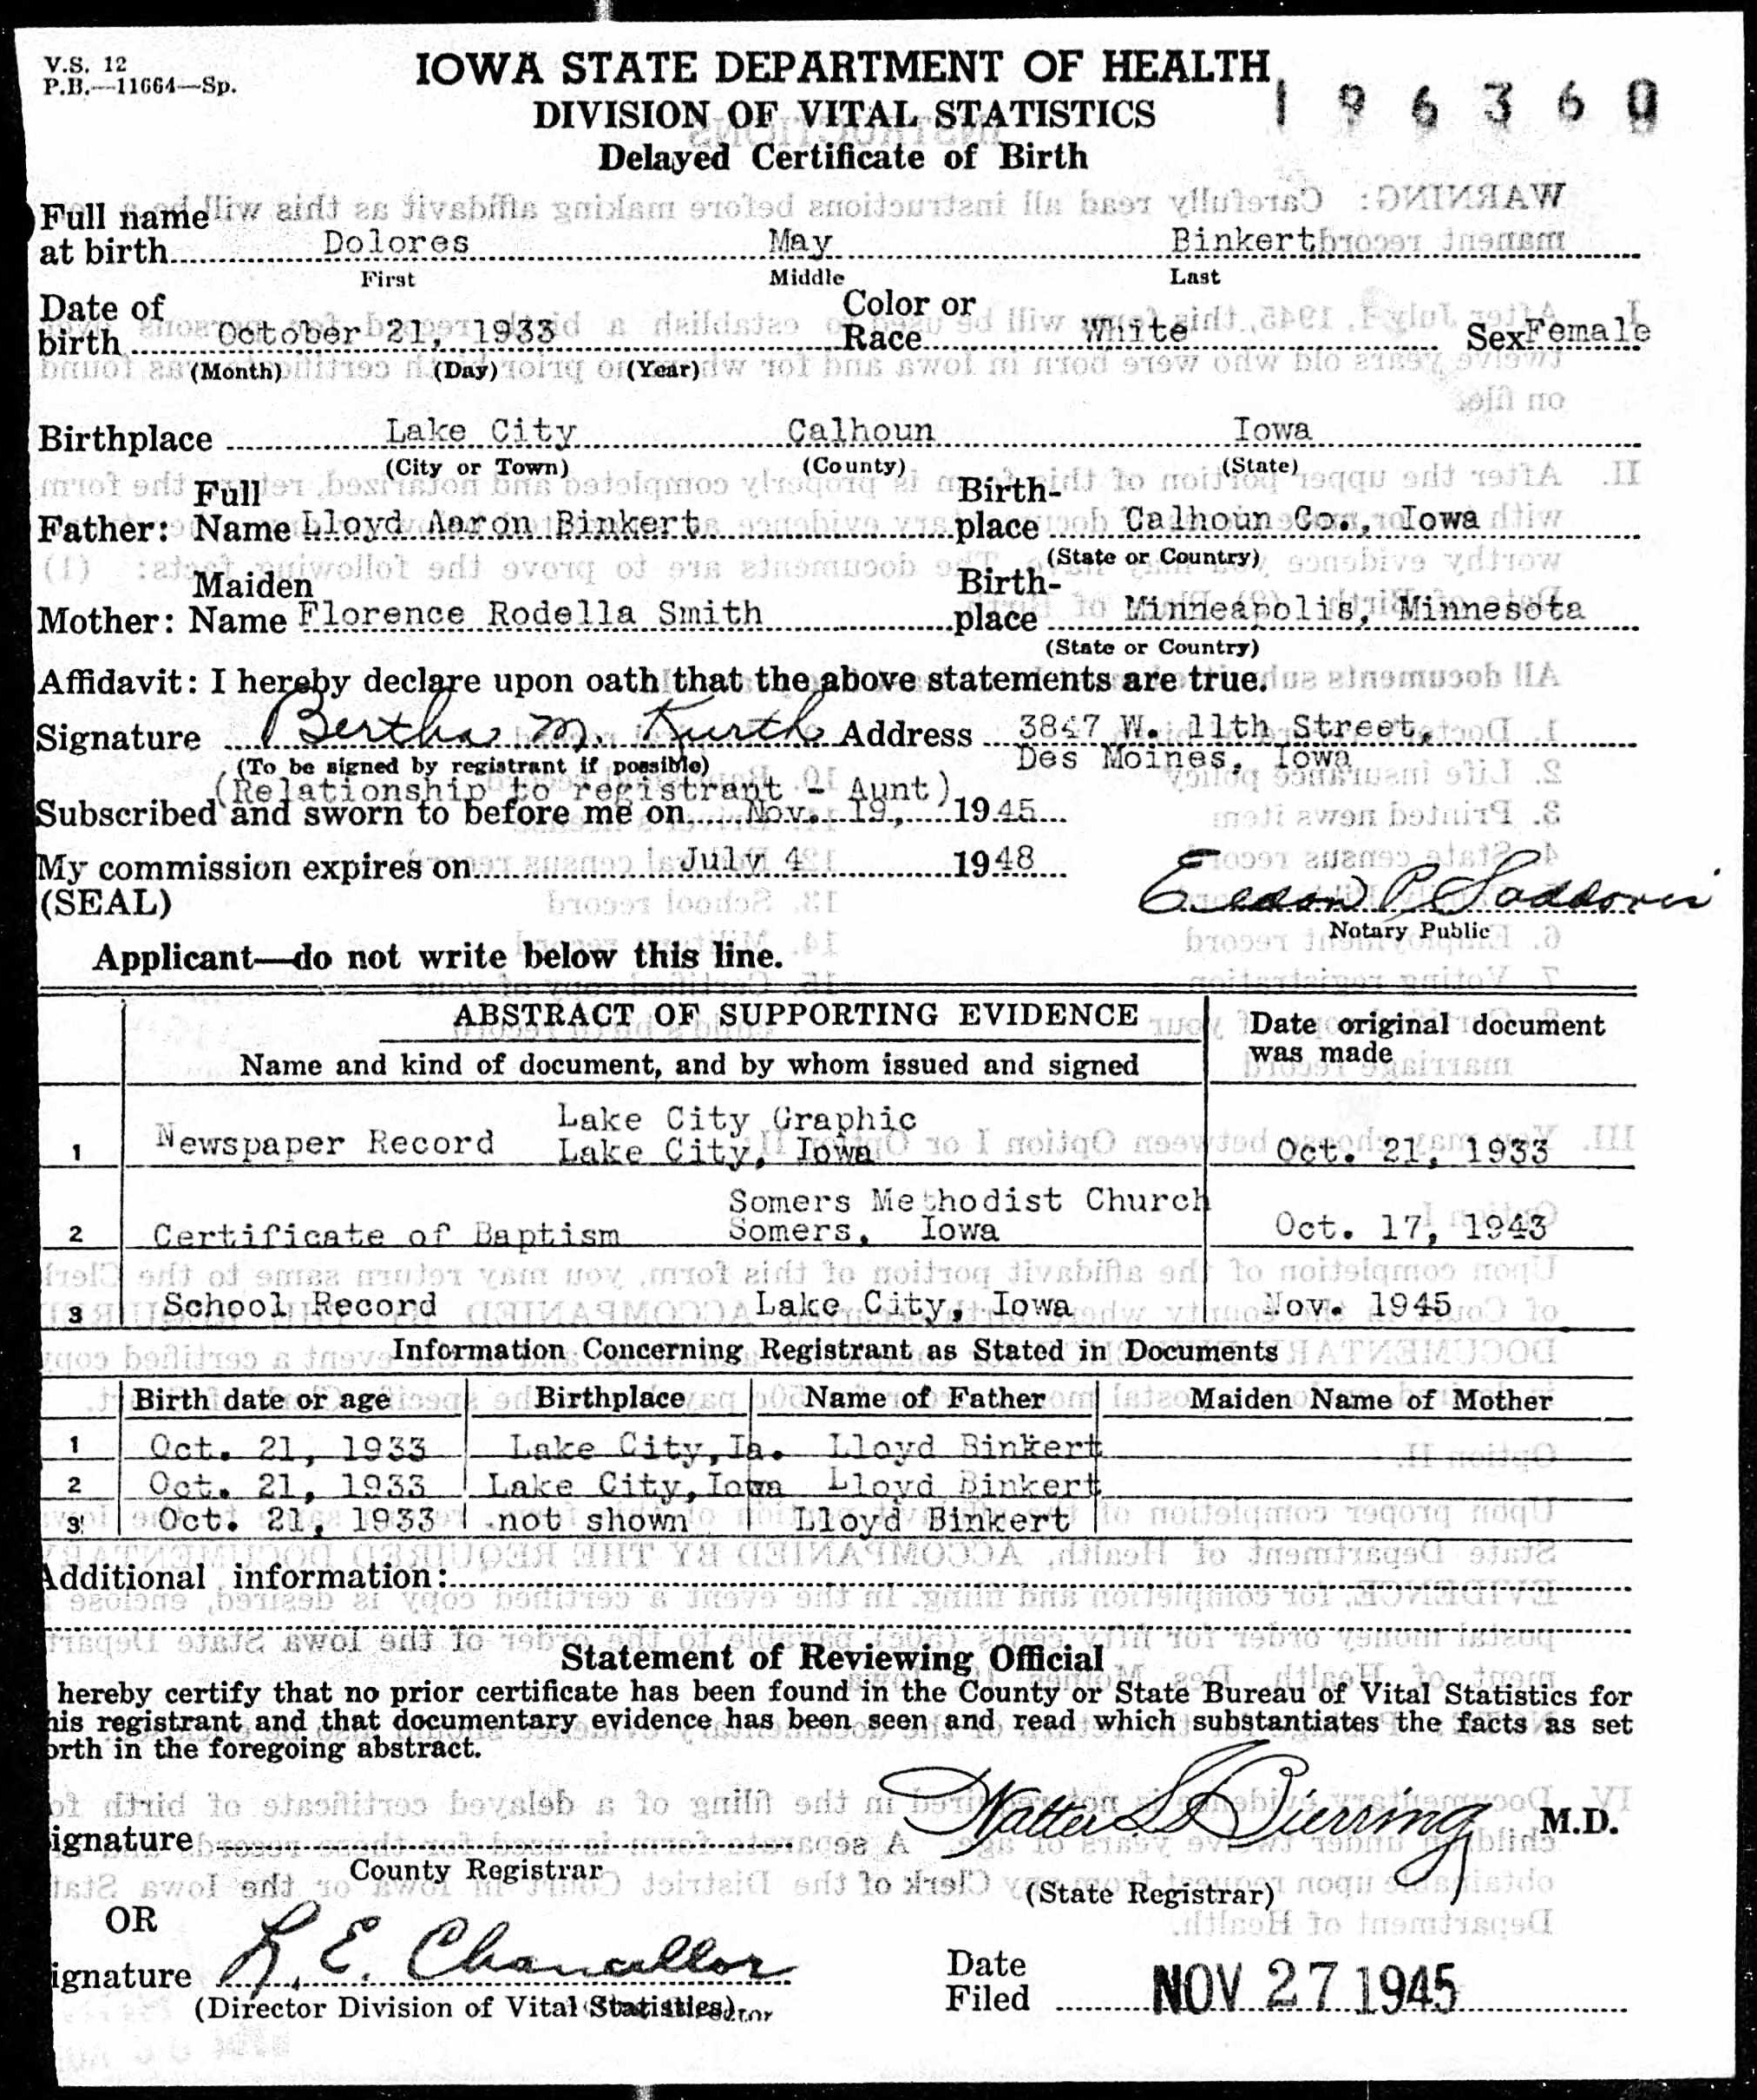 V.S. 12
P.B.—11664—Sp.
IOWA STATE DEPARTMENT OF HEALTH
DIVISION OF VITAL STATISTICS
Delayed Certificate of Birth
196360
Full name
at birth Dolores May Binkert
First Middle Last
Date of Color or
birth October 21, 1933 Race White Sex Female
(Month) (Day) (Year)
Birthplace Lake City Calhoun Iowa
(City or Town) (County) (State)
Full Birth-
Father: Name Lloyd Aaron Binkert place Calhoun Co., Iowa
(State or Country)
Maiden Birth-
Mother: Name Florence Rodella Smith place Minneapolis, Minnesota
(State or Country)
Affidavit: I hereby declare upon oath that the above statements are true.
Signature Bertha M. Kurth Address 3847 W. 11th Street,
(To be signed by registrant if possible) Des Moines, Iowa
(Relationship to registrant - Aunt)
Subscribed and sworn to before me on Nov. 19, 1945
My commission expires on July 4 1948
(SEAL)
Notary Public
Applicant—do not write below this line.
ABSTRACT OF SUPPORTING EVIDENCE
Name and kind of document, and by whom issued and signed
Date original document
was made
Lake City Graphic
1 Newspaper Record Lake City, Iowa Oct. 21, 1933
Somers Methodist Church
2 Certificate of Baptism Somers, Iowa Oct. 17, 1943
3 School Record Lake City, Iowa Nov. 1945
Information Concerning Registrant as Stated in Documents
Birth date or age Birthplace Name of Father Maiden Name of Mother
1 Oct. 21, 1933 Lake City, Ia. Lloyd Binkert
2 Oct. 21, 1933 Lake City, Iowa Lloyd Binkert
3 Oct. 21, 1933 not shown Lloyd Binkert
Additional information:
Statement of Reviewing Official
hereby certify that no prior certificate has been found in the County or State Bureau of Vital Statistics for
his registrant and that documentary evidence has been seen and read which substantiates the facts as set
orth in the foregoing abstract.
Walter L Bierring M.D.
ignature
County Registrar
(State Registrar)
OR
ignature L. E. Chancellor
(Director Division of Vital Statistics)
Date
Filed NOV 27 1945